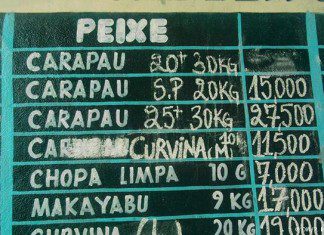 PEIXE
CARAPAU 20+ 30KG
CARAPAU S.P 20KG 15,000
CARAPAU 25+ 30KG 27,500
CURVINA (M) 10K 11,500
CHOPA LIMPA 10 G 7,000
MAKAYABU 9 KG 17,000
CURVINA 20KG 19,000